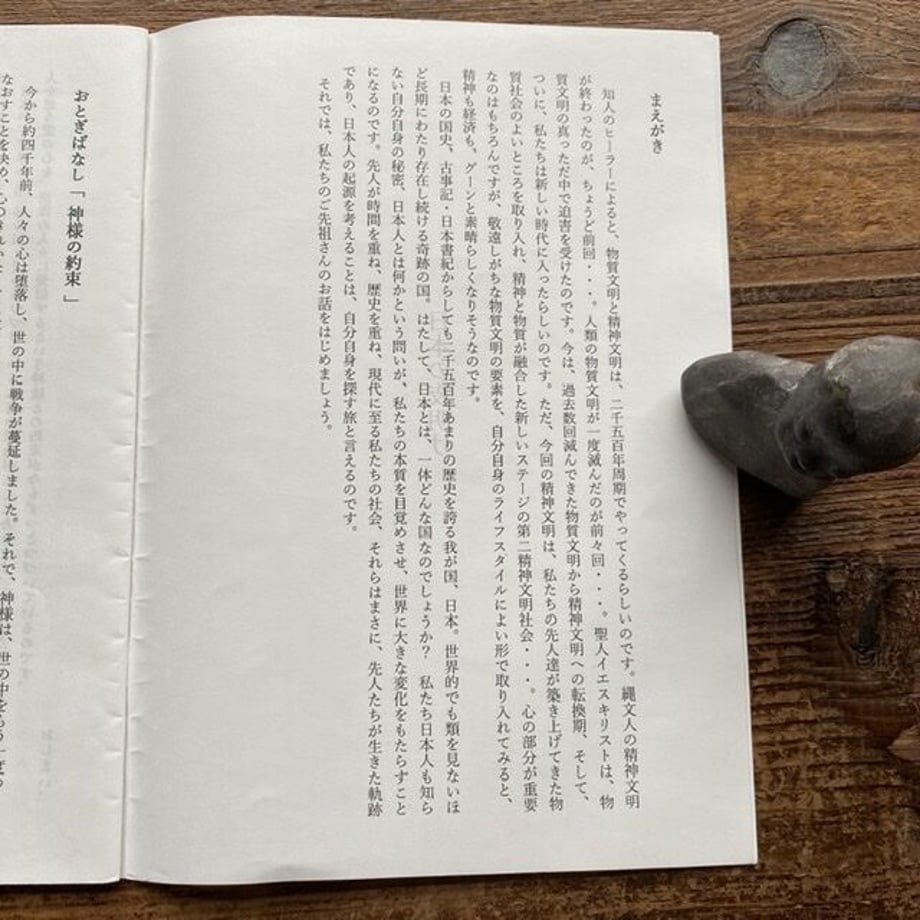 まえがき
知人のヒーラーによると、物質文明と精神文明は、二千五百年周期でやってくるらしいのです。縄文人の精神文明
が終わったのが、ちょうど前回・・・。人類の物質文明が一度滅んだのが前々回・・・。聖人イエスキリストは、物
質文明の真っただ中で迫害を受けたのです。今は、過去数回滅んできた物質文明から精神文明への転換期、そして、
ついに、私たちは新しい時代に入ったらしいのです。ただ、今回の精神文明は、私たちの先人達が築き上げてきた物
質社会のよいところを取り入れ、精神と物質が融合した新しいステージの第二精神文明社会・・・。心の部分が重要
なのはもちろんですが、敬遠しがちな物質文明の要素を、自分自身のライフスタイルによい形で取り入れてみると、
精神も経済も、グーンと素晴らしくなりそうなのです。
日本の国史、古事記・日本書紀からしても二千五百年あまりの歴史を誇る我が国、日本。世界的でも類を見ないほ
ど長期にわたり存在し続ける奇跡の国。はたして、日本とは、一体どんな国なのでしょうか？ 私たち日本人も知ら
ない自分自身の秘密、日本人とは何かという問いが、私たちの本質を目覚めさせ、世界に大きな変化をもたらすこと
になるのです。先人が時間を重ね、歴史を重ね、現代に至る私たちの社会、それらはまさに、先人たちが生きた軌跡
であり、日本人の起源を考えることは、自分自身を探す旅と言えるのです。
それでは、私たちのご先祖さんのお話をはじめましょう。
おとぎばなし「神様の約束」
今から約四千年前、人々の心は堕落し、世の中に戦争が蔓延しました。それで、神様は、世の中をもう一度つ
なおすことを決め、